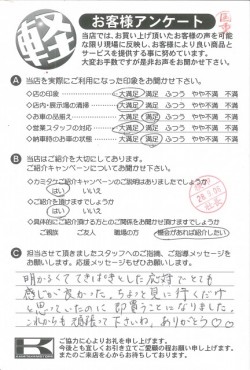 軽
お客様アンケート
当店では、お買い上げ頂いたお客様の声を可能
な限り現場に反映し、お客様により良い商品と
サービスを提供する事に努めています。
大変お手数ですが是非お声をお聞かせ下さい。
A 当店を実際にご利用になった印象をお聞かせ下さい。
◇店の印象 大満足 満足 ふつう やや不満 不満
◇店内・展示場の清掃 大満足 満足 ふつう やや不満 不満
◇お車の品揃え 大満足 満足 ふつう やや不満 不満
◇営業スタッフの対応 大満足 満足 ふつう やや不満 不満
◇納車時のお車の状態 大満足 満足 ふつう やや不満 不満
B 当店はご紹介を大切にしてあります。
ご紹介キャンペーンについてお聞かせ下さい。
◇カミタケご紹介キャンペーンのご説明はありましたでしょうか
はい いいえ
◇ご紹介を頂けますでしょうか
はい いいえ
◇具体的にご紹介頂ける方とのご関係をお聞かせ頂けますでしょうか
ご親族 ご友人 職場の方 機会があれば紹介したい
C 担当させて頂きましたスタッフへのご指摘、ご指導メッセージを
お願いします。応援メッセージもぜひお願いします。
明かるくててきぱきとした応対でとても
感じが良かった。ちょっと見に行くだけ
と思っていたのに即買うことになりました。
これからも頑張って下さいね。ありがとう♡♡
K
ご協力に心よりお礼を申し上げます。
今後とも宜しくお引き立てご愛顧の程お願い申し上げます。
またのご来店を心からお待ちしております。